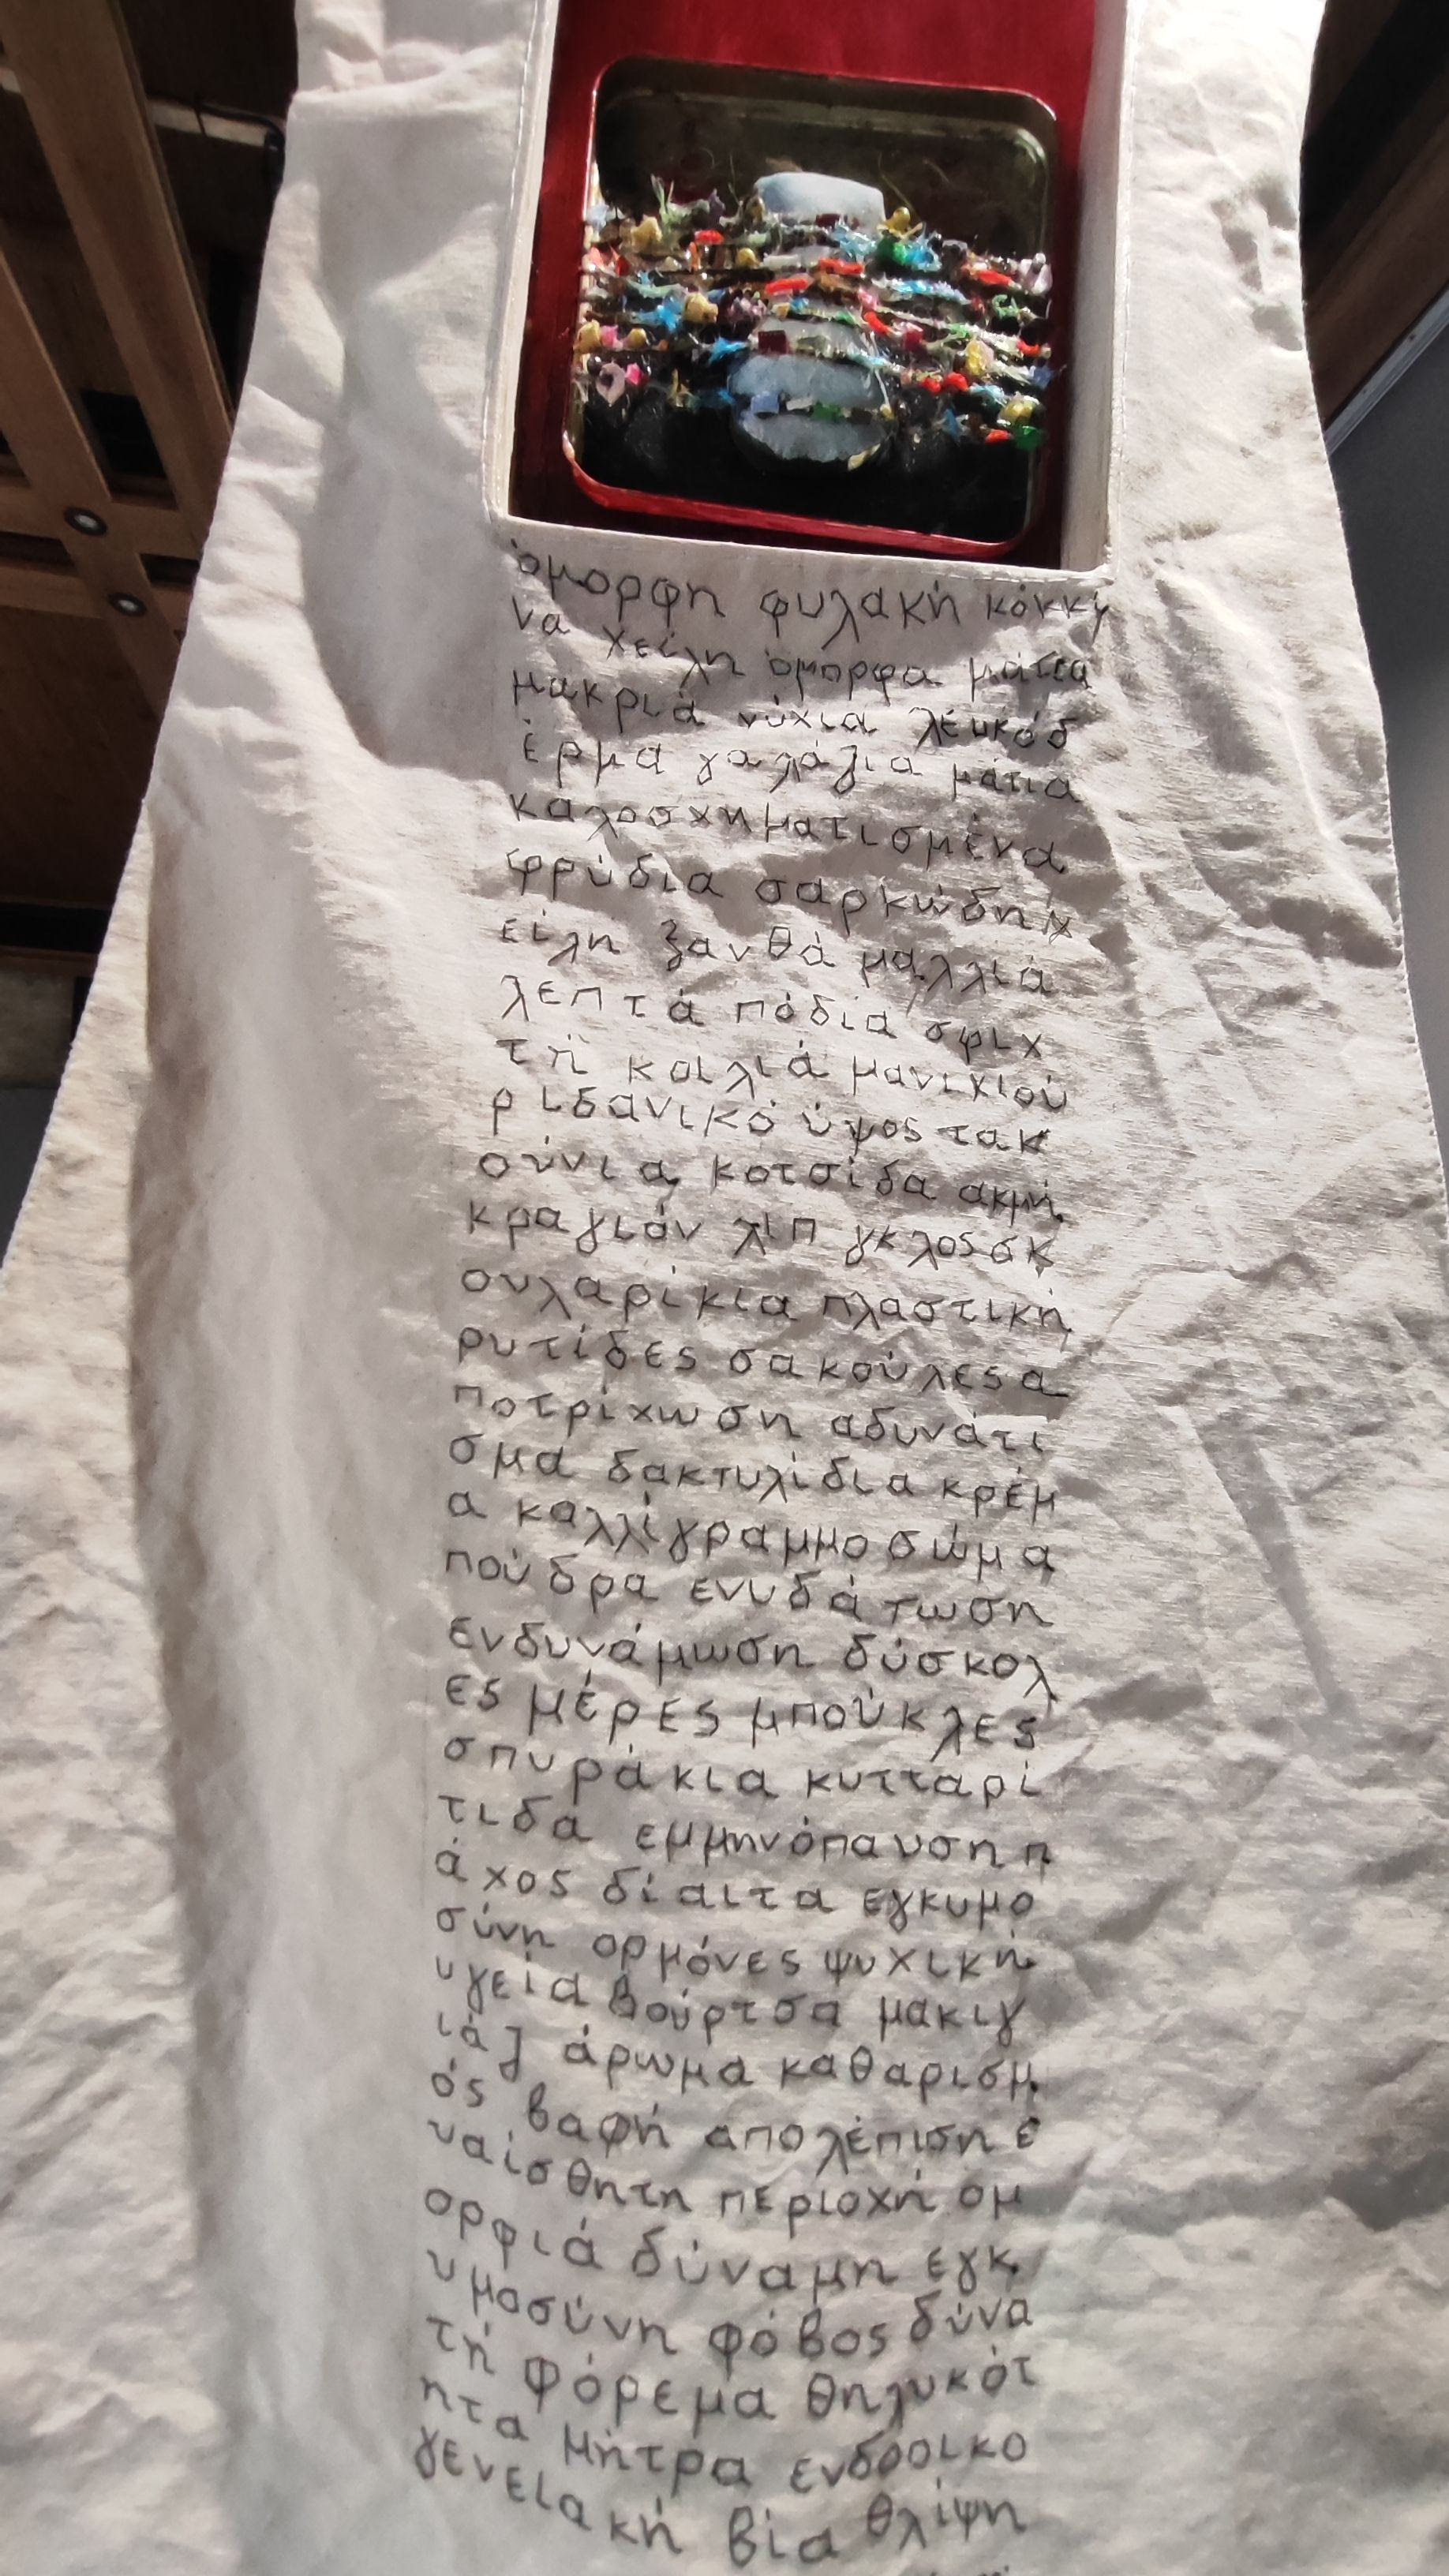 όμορφη φυλακή κόκκι
να χείλη όμορφα μάτια
μακριά νύχια λευκό δ
έρμα γαλάζια μάτια
καλοσχηματισμένα
φρύδια σαρκώδη χ
είλη ξανθά μαλλιά
λεπτά πόδια σφιχ
τή κοιλιά μανικιού
ρ ιδανικό ύψος τακ
ούνια κοτσίδα ακμή
κραγιόν λιπ γκλος σκ
ουλαρίκια πλαστική
ρυτίδες σακούλες α
ποτρίχωση αδυνάτι
σμα δακτυλίδια κρέμ
α καλλίγραμμο σώμα
πούδρα ενυδάτωση
ενδυνάμωση δύσκολ
ες μέρες μπούκλες
σπυράκια κυτταρί
τιδα εμμηνόπαυση π
άχος δίαιτα εγκυμο
σύνη ορμόνες ψυχική
υγεία βούρτσα μακιγ
ιάζ άρωμα καθαρισμ
ός βαφή απολέπιση ε
υαίσθητη περιοχή ομ
ορφιά δύναμη εγκ
υμοσύνη φόβος δυνα
τή φόρεμα θηλυκότ
ητα μήτρα ενδοοικο
γενειακή βία θλίψη